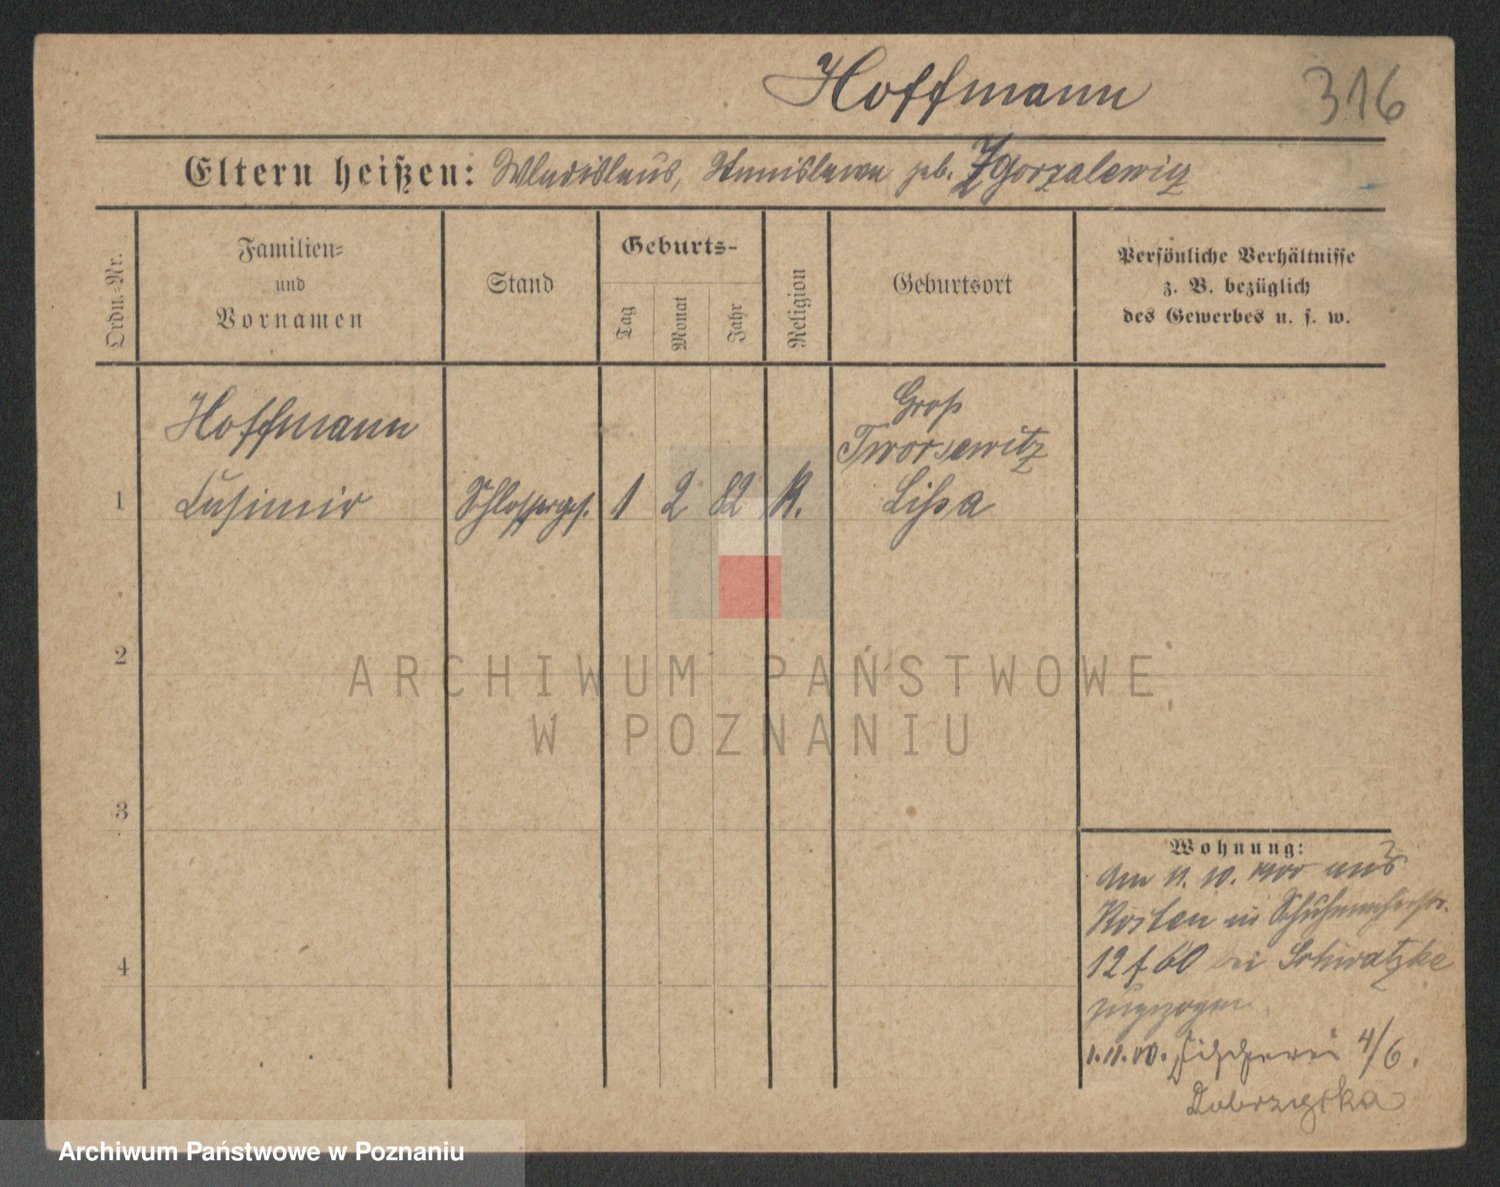 Hoffmann 316
Eltern heißen: Wladislaus, Stanislawa geb. Zgorzalewicz
Ordn.-Nr.
Familien-
und
Vornamen
Stand
Geburts-
Tag
Monat
Jahr
Religion
Geburtsort
Persönliche Verhältnisse
z. B. bezüglich
des Gewerbes u. s. w.
Hoffmann
Groß
Tworsewitz
1 Casimir Schlosserges. 1 2 82 K. Lissa
2
3
4
Wohnung:
am 11. 10. 1900 aus
Kosten in Schuhmacherstr.
12 f 60 bei Schwatzke
zugezogen
1.11.00. Fischerei 4/6.
ARCHIWUM PAŃSTWOWE
W POZNANIU
Archiwum Państwowe w Poznaniu